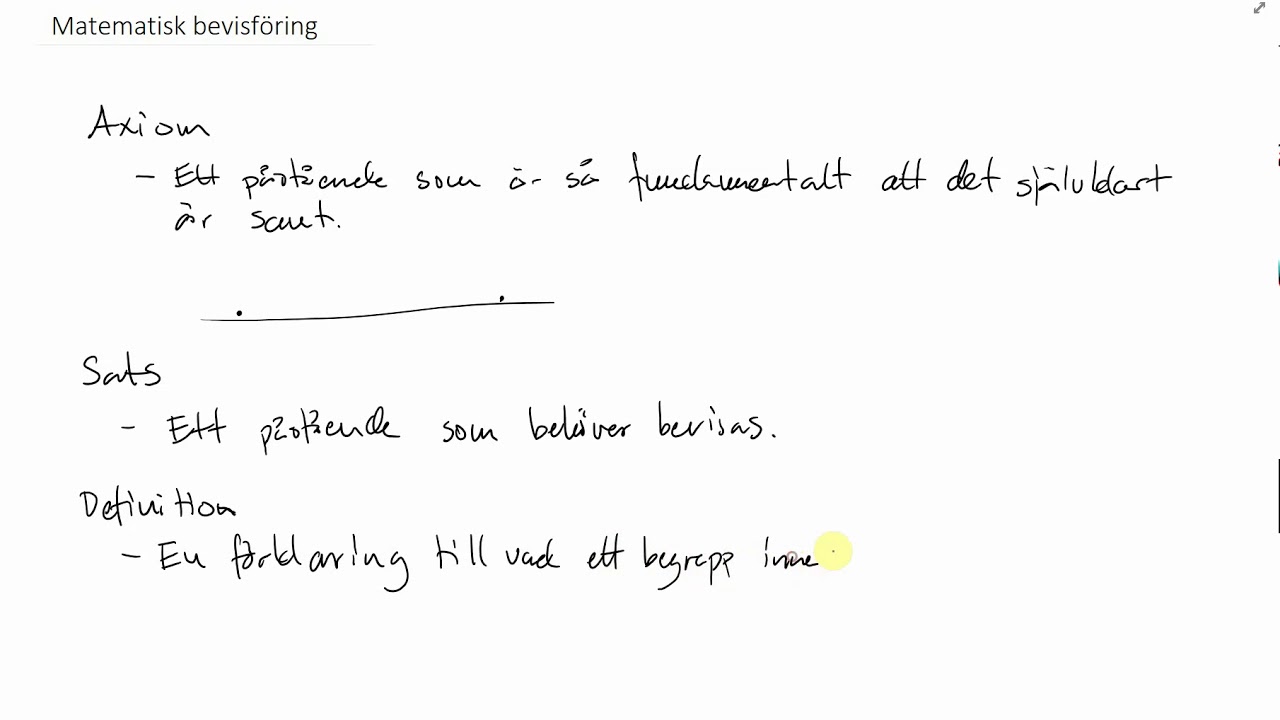 Matematisk bevisföring
Axiom
- Ett påstående som är så fundamentalt att det självklart
är sant.
Sats
- Ett påstående som behöver bevisas.
Definition
- En förklaring till vad ett begrepp inne